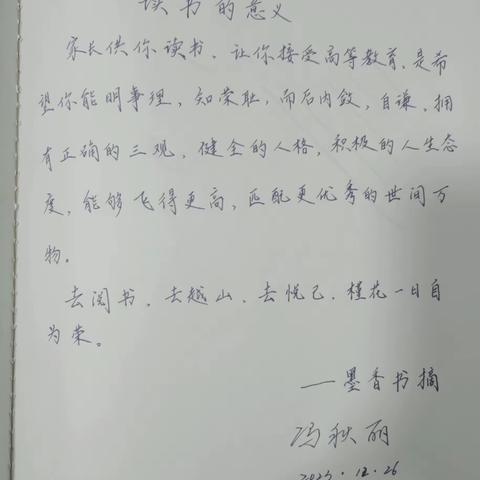 读书的意义
家长供你读书、让你接受高等教育、是希
望你能明事理，知荣耻，而后内敛，自谦、拥
有正确的三观，健全的人格，积极的人生态
度，能够飞得更高，匹配更优秀的世间万
物。
去阅书、去越山、去悦己、槿花一日自
为荣。
——墨香书摘
冯秋丽
2023.12.26